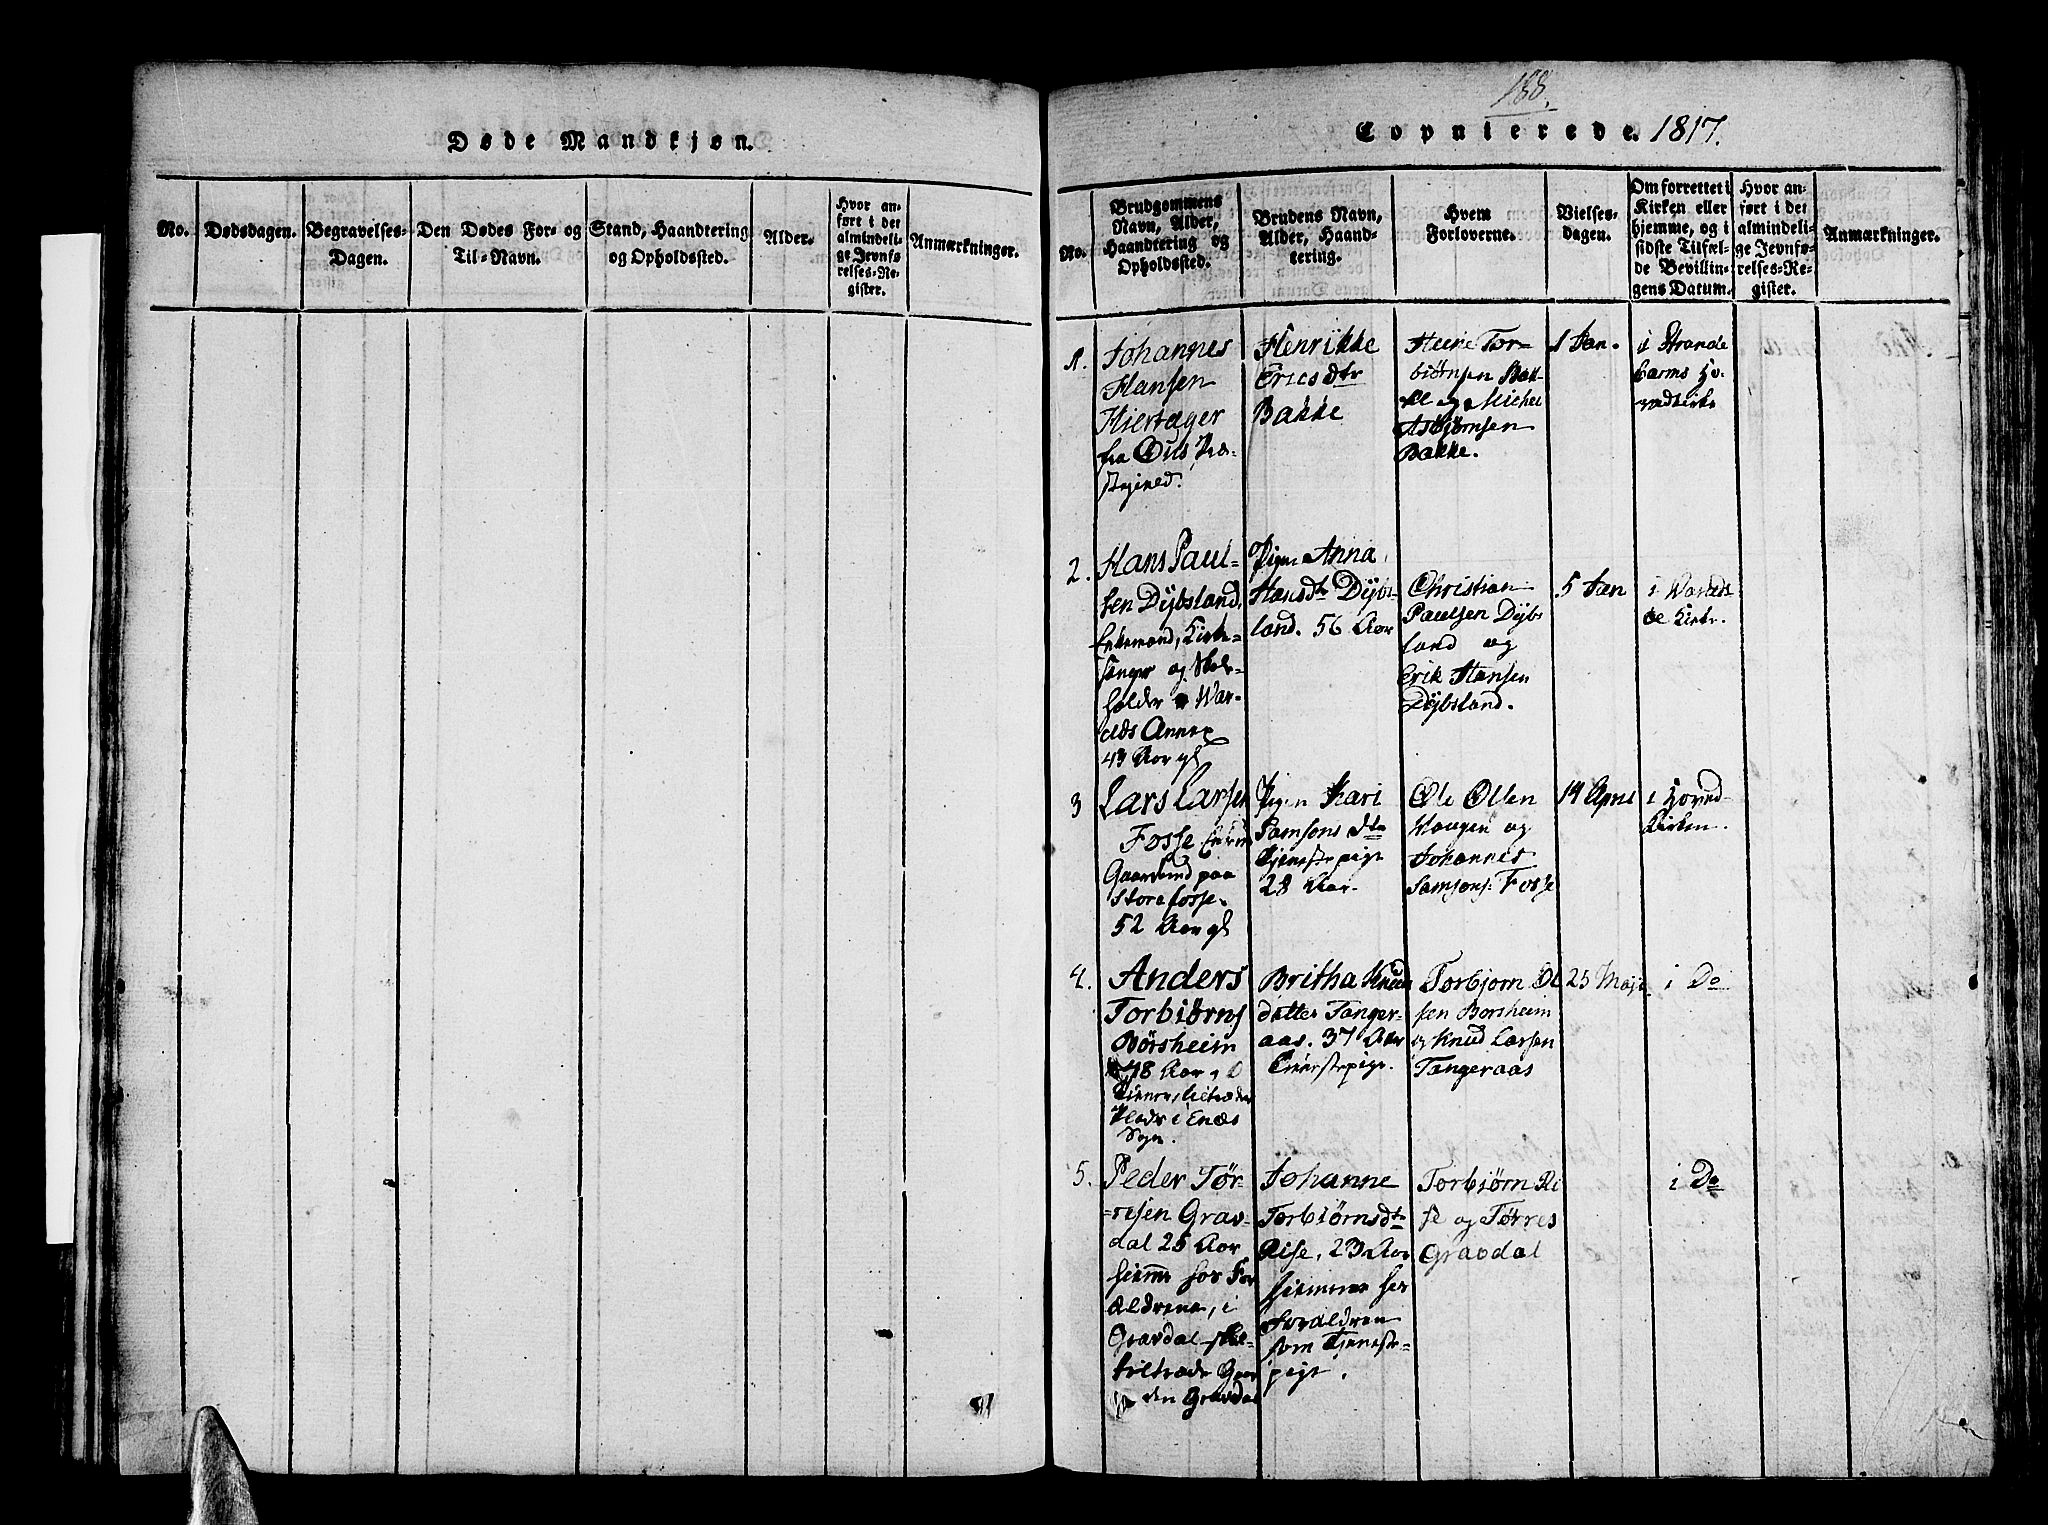 Døde Mandkjøn.
No.
Dødsdagen.
Begravelses-
Dagen.
Den Dødes For- og
Til-Navn.
Stand, Haandtering
og Opholdssted.
Alder.
Hvor an-
ført i det
almindeli-
ge Jevnfø-
relses-Re-
gister.
Anmærkninger.
188.
Copulerede. 1817.
No.
Brudgommens
Navn, Alder,
Haandtering og
Opholdssted.
Brudens Navn,
Alder, Haand-
tering.
Hvem
Forloverne.
Vielses-
dagen.
Om forrettet i
Kirken eller
hjemme, og i
sidste Tilfæl-
de Bevillin-
gens Datum.
Hvor an-
ført i det
almindeli-
ge Jevnfø-
relses-Re-
gister.
Anmærkninger.
1.
Johannes
Hansen
fra Ous Præ-
stegield.
Henrikke
Ericsdtr
Bakke
Tor-
biørnsen Bak-
ke og Michel
Asbjørnsen
Bakke.
1 Jan.
i Strande
barms Ho-
vedkirke
2.
Hans Paul-
sen Dÿbsland,
Enkemand, Kirke-
sanger og Skole-
holder i War-
alds Annex
43 Aar gl
Pigen Anna
Hansdtr Dÿbs-
land. 56 Aar
Christian
Paulsen Dÿbs
land og
Erik Hansen
Dÿbsland.
5 Jan
i Waralds
øe Kirke.
3
Lars Larsen
Fosse
Gaardmd paa
Storefosse.
52 Aar gl
Pigen Kari
Samsons dtr
Tjenestepige
28 Aar.
Ole Olsen
Haugen og
Johannes
Samsons: Fosse
14 April
i Hoved-
Kirken.
4.
Anders
Torbiørns
Børsheim
48 Aar
i Enæs
Sogn.
Britha Knud
datter Tanger-
aas. 37 Aar
Tienestepige.
Torbjorn Ol
sen Borsheim
og Knud Larsen
Tangeraas
25 Maji
i Do
5.
Peder Tør-
-resen Grav-
dal 25 Aar
hiemme hos For
ældrene, i
Gravdal skal
tiltræde Gaar
den Gravdal
Johanne
Torbiørnsdtr
Rise, 23 Aar
hiemme hos
Forældren
som Tjeneste-
pige.
Torbiørn Ri
se og Tørres
Gravdal
i Do